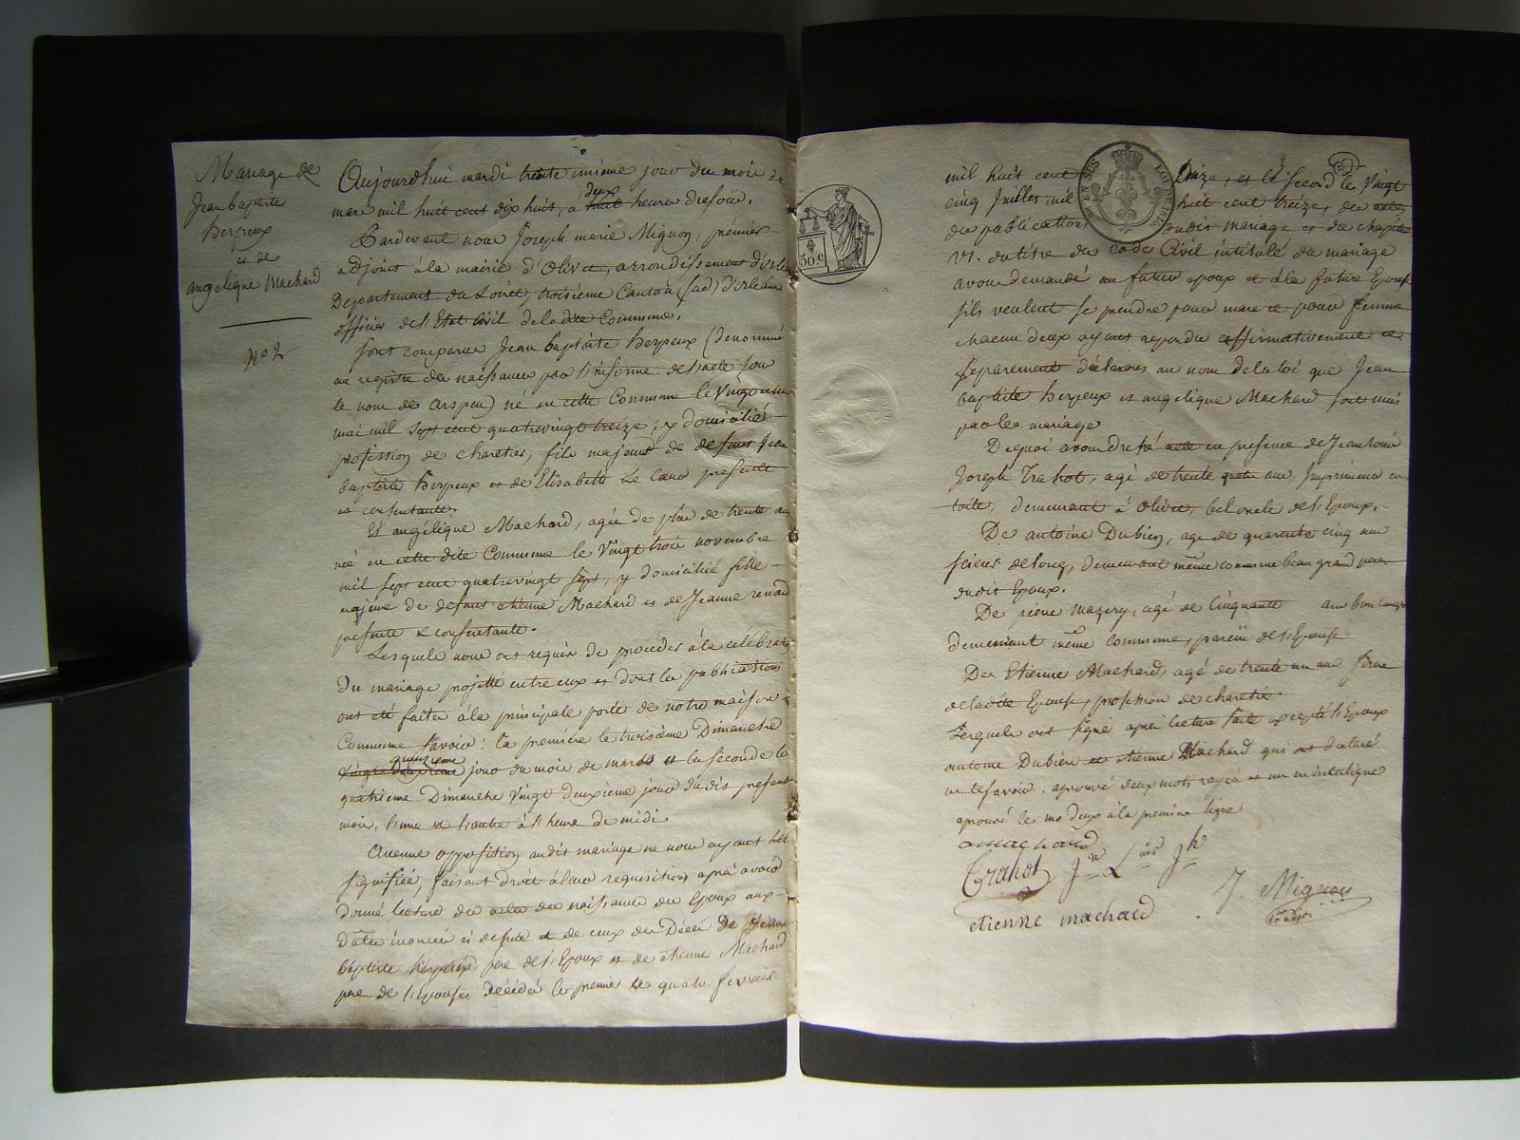 Mariage de
Jean baptiste
herpeux
et de
angelique Machard
No 2
Aujourd'hui mardi trente unième jour du mois de
mars mil huit cent dix huit, à deux heures du soir.
Pardevant nous Joseph marie Mignon, premier
adjoint à la mairie d'Olivet, arrondissement d'orléans
Département du Loiret, troisième Canton (sud) d'orléans
officier de l'Etat Civil de ladite Commune.
sont comparus Jean baptiste herpeux (denommé
au registre des naissances par l'acte sous
le nom de arpeu) né en cette Commune le vingt
mai mil sept cent quatrevingt treize, y domicilié
profession de charetier, fils majeur de defunt Jean
baptiste herpeux et de Elisabeth Le Cœur presente
et consentante.
Et angélique Machard, agée de plus de trente ans
née en cette dite Commune le vingt trois novembre
mil sept cent quatrevingt sept, y domiciliée fille
majeure de defunt etienne Machard et de Jeanne renard
presente & consentante.
Lesquels nous ont requis de proceder à la celebration
du mariage projetté entre eux et dont les publications
ont été faites à la principale porte de notre maison
Commune savoir: la première le troisième Dimanche
quinzième
vingt deuxième jour du mois de mars et la seconde le
quatrième Dimanche vingt deuxième jour dudit present
mois, à l'heure de midi.
Aucune opposition audit mariage ne nous ayant été
signifiée, faisant droit à leur requisition après avoir
donné lecture des actes des naissances des Epoux
de ceux des Décès de Jean
baptiste herpeux pere de l'Epoux et de etienne Machard
pere de l'Epouse décédés le premier le quatre fevrier
mil huit cent onze, et le second le vingt
cinq Juillet mil huit cent treize, des actes
de publication dudit mariage et du chapitre
VI. du titre du Code Civil intitulé du mariage
avons demandé au futur epoux et à la future Epouse
s'ils veulent se prendre pour mari et pour femme
chacun deux ayant repondu affirmativement et
séparement déclarons au nom de la loi que Jean
baptiste herpeux et angelique Machard sont unis
par le mariage
De quoi avons dressé acte en presence de Jean Louis
Joseph Trahot, agé de trente ans Imprimeur en
toile, demeurant à olivet, bel oncle de l'Epoux.
De antoine Dubien, agé de quarante cinq ans
scieur de long, demeurant même commune beau
dudit Epoux.
De pierre mazery, agé de Cinquante ans
demeurant même commune, parein de l'Epouse
De Etienne Machard, agé de trente un ans frere
de ladite Epouse, profession de charetier.
Lesquels ont signé après lecture faite excepté l'Epoux
antoine Dubien et Machard qui ont déclaré
ne le savoir. aprouvé deux mots rayés et un en interligne
aprouvé le mot deux à la première ligne
a machard
Trahot Jn Lis Jh
etienne machard
J. Mignon
adjoint
50 c